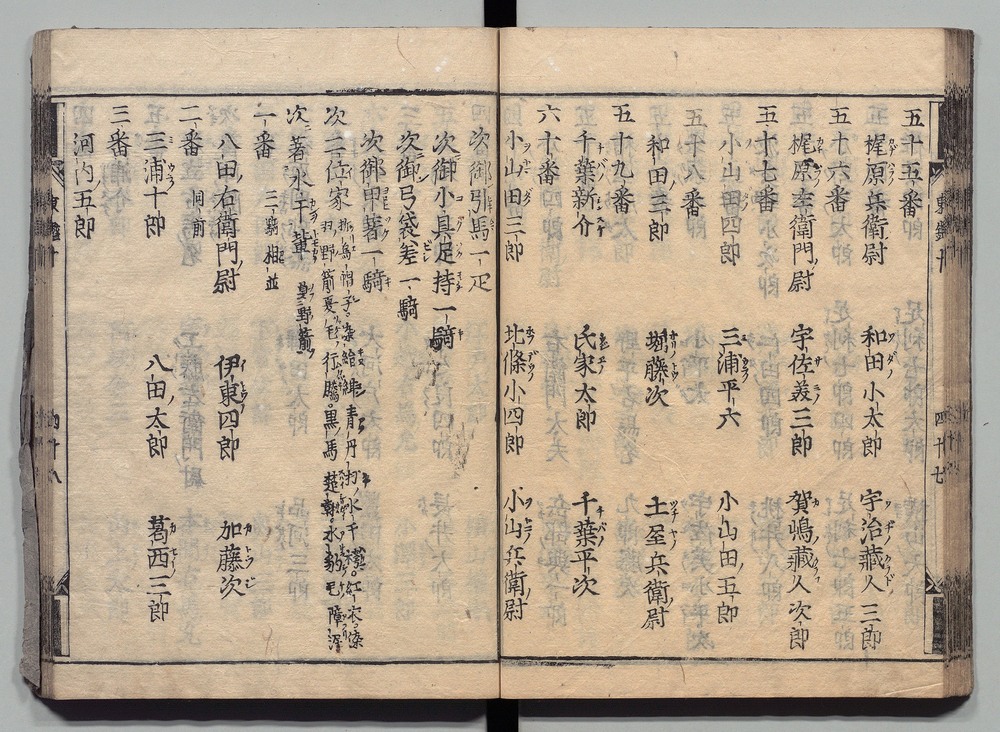 五十五番
梶原兵衛尉 和田小太郎 宇治藏人三郎
五十六番
梶原左衛門尉 宇佐美三郎 賀嶋藏人次郎
五十七番
小山田四郎 三浦平六 小山田五郎
五十八番
和田三郎 堀藤次 土屋兵衛尉
五十九番
千葉新介 氏家太郎 千葉平次
六十番
小山田三郎 北條小四郎 小山兵衛尉
次御引馬一疋
次御小具足持一騎
次御弓袋差一騎
次御甲著一騎
次二位家
次著水干輩
一番 三騎相並
八田右衛門尉 伊東四郎 加藤次
二番 同前
三浦十郎 八田太郎 葛西三郎
三番
河内五郎
東鑑十 四十七
四十八